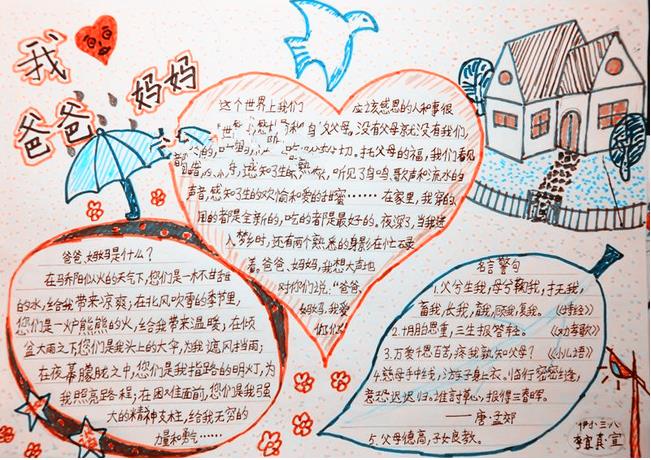 我
爸爸
妈妈
这个世界上我们 应该感恩的人和事很
父母,没有父母就没有我们,
切,托父母的福,我们看见
感知了生的 听见了鸟鸣歌声和流水的
声音,感知了生的欢愉和爱的甜蜜……在家里,我穿的
用的都是全新的,吃的都是最好的。夜深了,当我进
入梦乡时,还有两个熟悉的身影在忙忙碌
着。爸爸、妈妈,我想大声地
对你们说:“爸爸、
妈妈,我爱
你们
爸爸、妈妈是什么?
在马乔阳似火的天气下,您们是一杯甘甜
的水,给我带来凉爽;在北风吹雪的季节里,
您们是一炉熊熊的火,给我带来温暖;在倾
盆大雨之下您们是我头上的大伞,为我遮风挡雨;
在夜幕朦胧之中,您们是我指路的明灯,为
我照亮路程;在困难面前,您们是我强
大的精神支柱,给我无穷的
力量和勇气……
名言警句
1.父兮生我,母兮鞠我,抚我,
畜我,长我,育我,顾我,复我。
2.十月胎恩重,三生报答轻。《劝孝歌》
3.万爱千恩百苦,疼我孰知父母?《小儿语》
4.慈母手中线,游子身上衣。临行密密缝,
意恐迟迟归。谁言寸草心,报得三春晖。
——唐·孟郊
5.父母德高,子女良教。